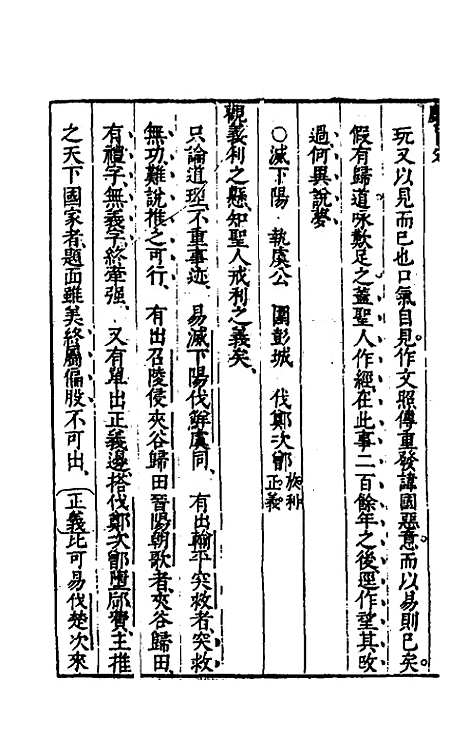 玩又以見而已也口氣自見作文照傳重發諱國惡意而以易則已矣
假有歸道咏歎足之蓋聖人作經在此事二百餘年之後逕作望其改
過何異說夢
○滅下陽 執虞公 圍彭城 伐鄭次鄫 施利正義
觀義利之懸知聖人戒利之義矣
只論道理不重事迹 易滅下陽伐鮮虞同 有出輸平突救者突救
無功難說推之可行 有出召陵侵夾谷歸田晉陽朝歌者夾谷歸田
有禮字無義字終牽强 又有單出正義邊搭伐鄭次鄫墮郈費主推
之天下國家者題面雖美終屬偏股不可出 正義比可易伐楚次來